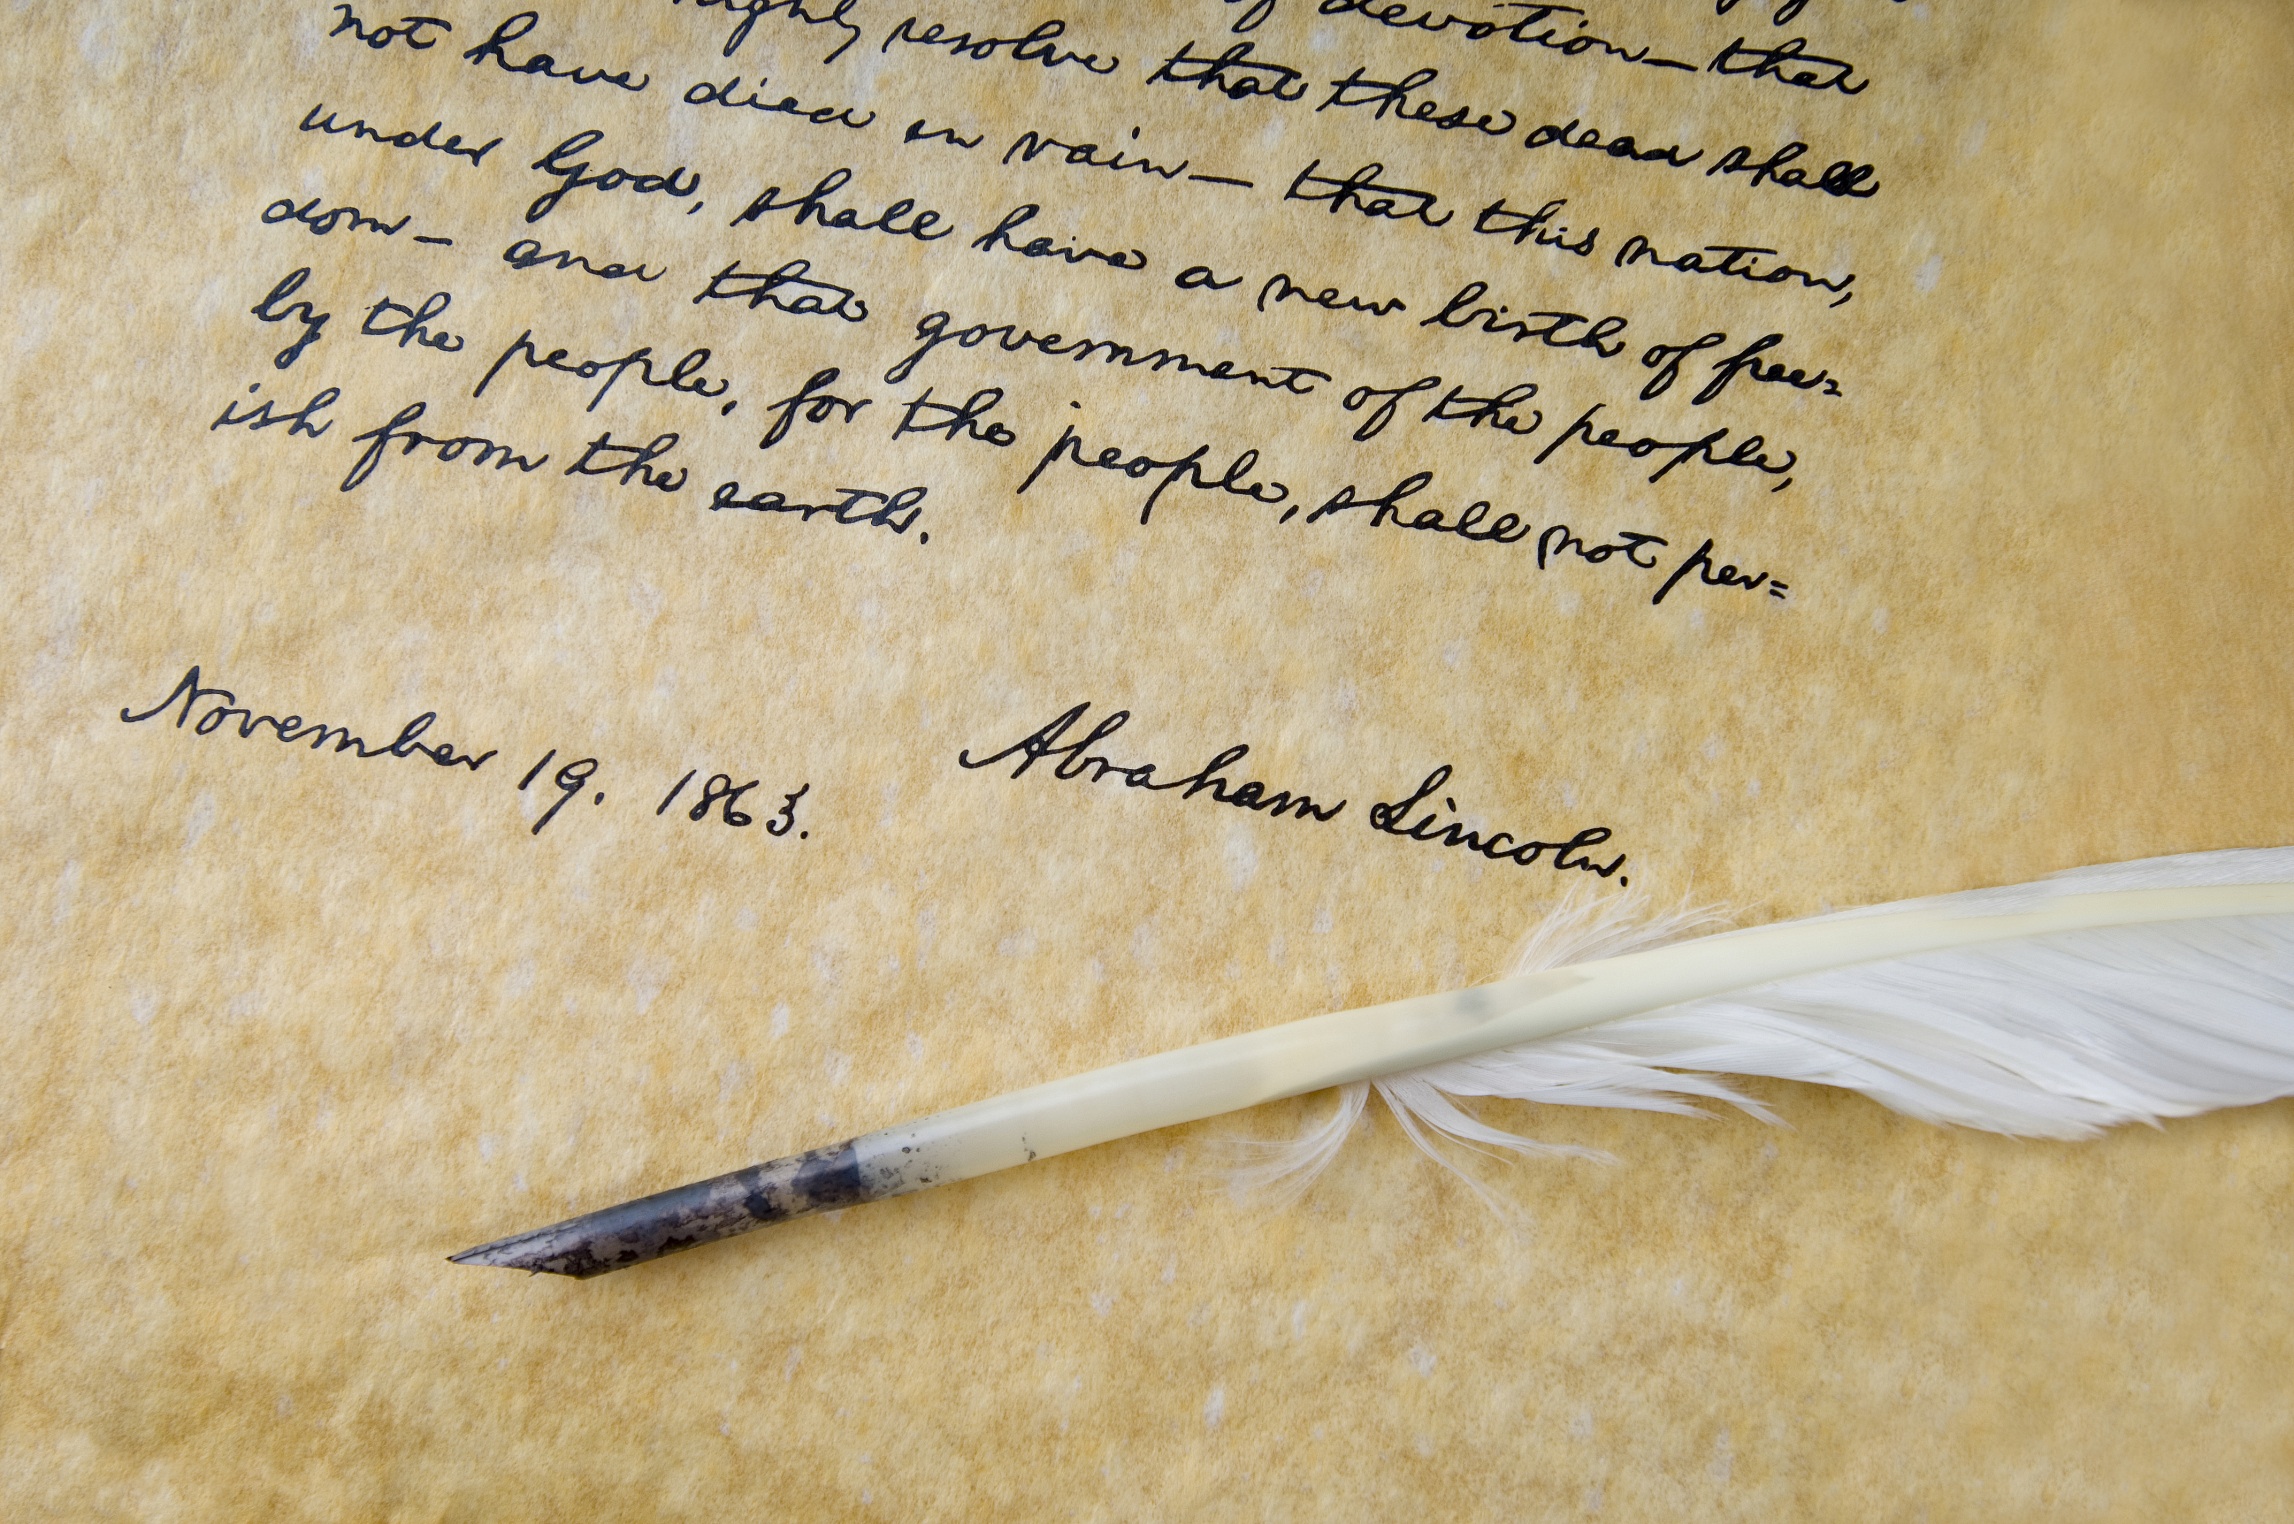 of devotion—that
highly resolve that these dead shall
not have died in vain— that this nation,
under God, shall have a new birth of free=
dom— and that government of the people,
by the people, for the people, shall not per=
ish from the earth.
November 19. 1863.
Abraham Lincoln.